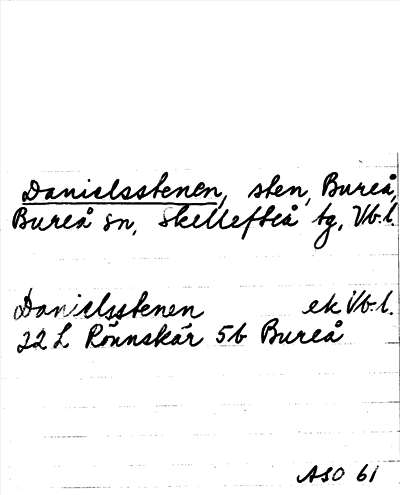 Danielsstenen, sten, Bureå,
Bureå sn, Skellefteå tg, Vb.l.
Danielsstenen ek Vb.l.
22 L Rönnskär 5b Bureå
ASO 61